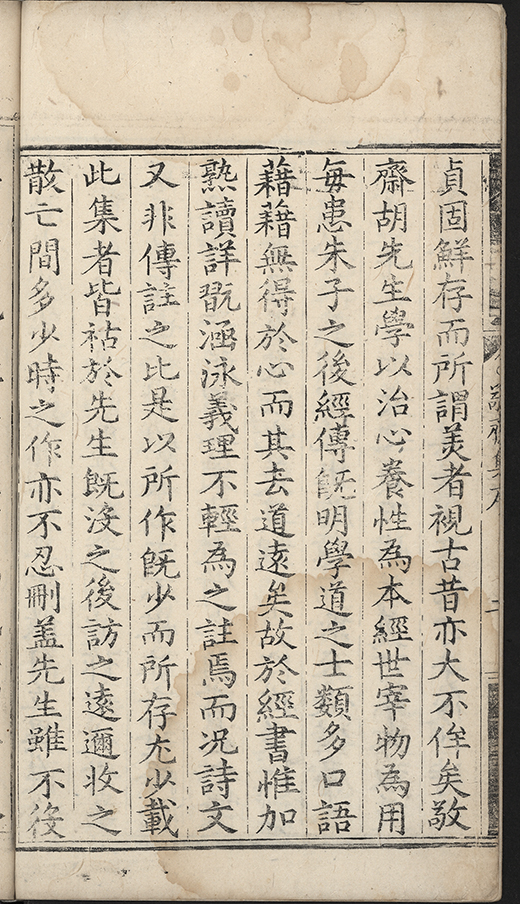 貞固鮮存而所謂美者視古昔亦大不侔矣敬
齋胡先生學以治心養性為本經世宰物為用
每患朱子之後經傳既明學道之士類多口語
藉藉無得於心而其去道遠矣故於經書惟加
熟讀詳翫涵泳義理不輕為之註焉而况詩文
又非傳註之比是以所作既少而所存尤少載
此集者皆祜於先生既沒之後訪之遠邇收之
散亡間多少時之作亦不忍刪盖先生雖不後